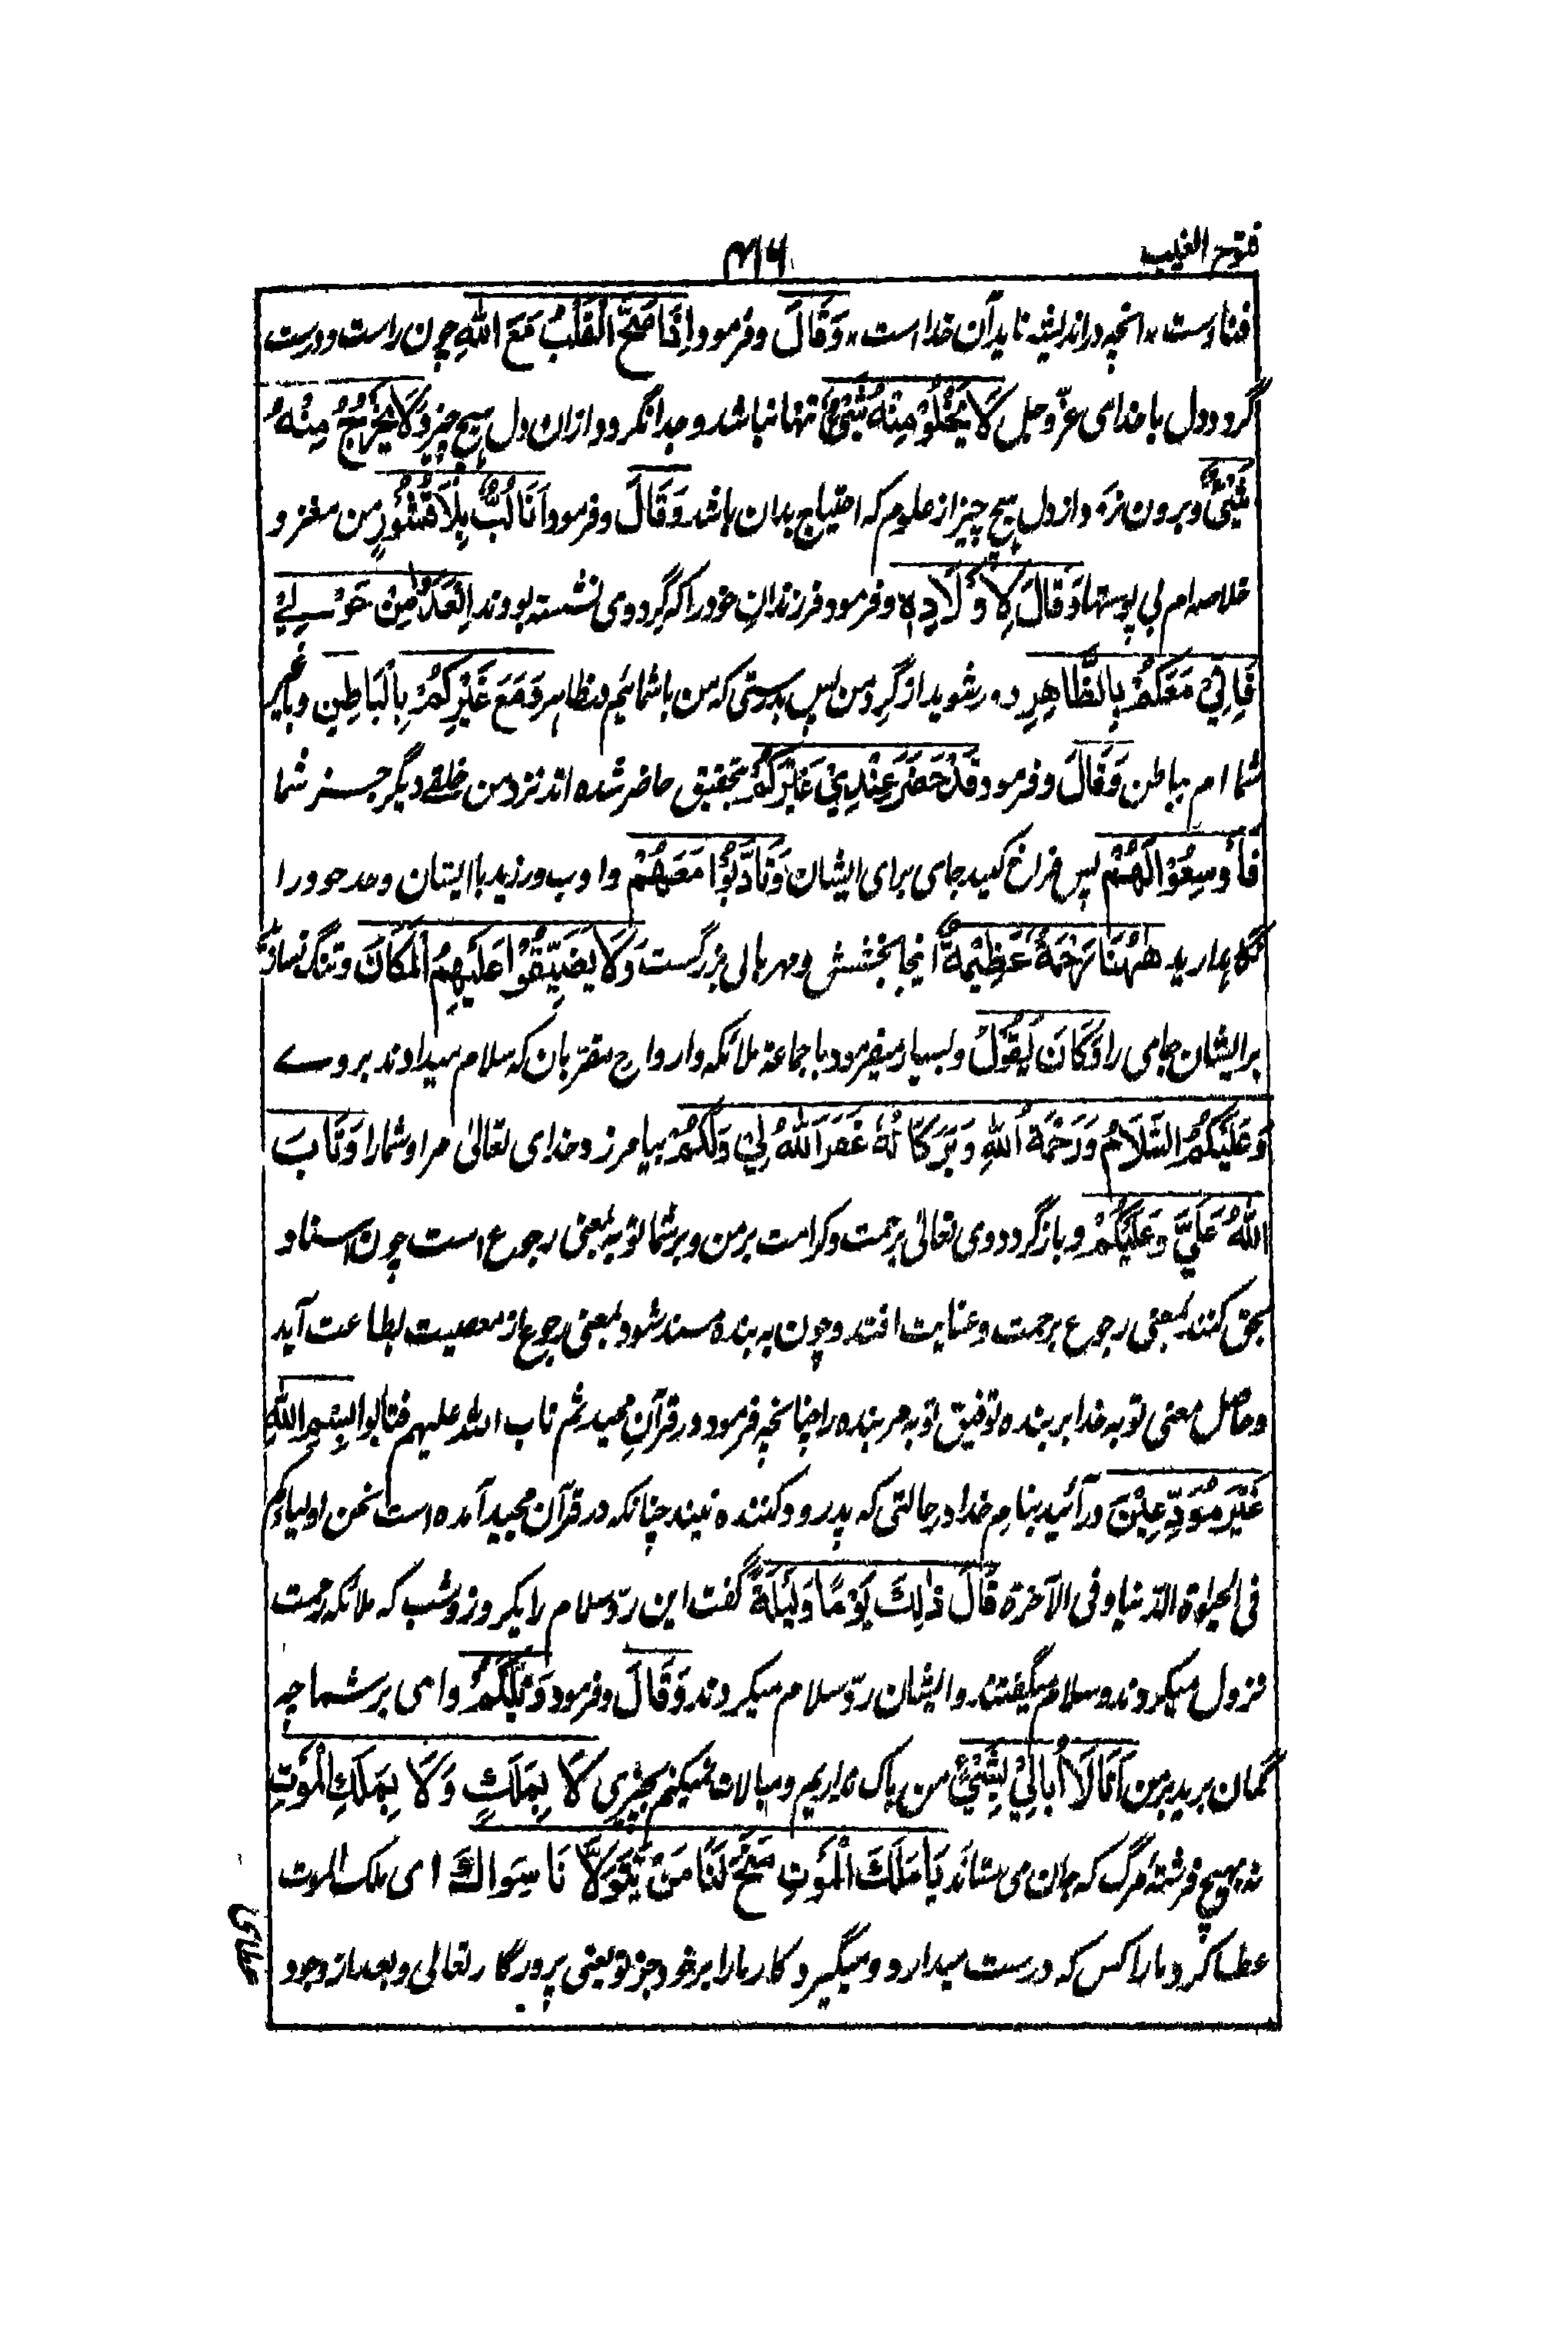 فتوح الغیب
۴۱۶
فناوست * انچه در اندیشه ناید آن خداست * وَقَالَ وفرمود اِذَا صَحَّ الْقَلْبُ مَعَ اللهِ چون راست ودرست
گردد دل با خدای عزّ وجل لَا يَخْلُوْ مِنْهُ شَيْءٌ تنها نباشد وجدا نگردد ازان دل ہیچ چیز وَلَا يَخْرُجُ مِنْهُ
شَيْءٌ وبرون نرود از دل ہیچ چیز از علوم که احتیاج بدان باشد وَقَالَ وفرمود اَنَا لُبٌّ بِلَا قُشُوْرٍ من مغز و
خلاصه ام بی پوستها وَقَالَ لِاَوْلَادِهٖ وفرمود فرزندانِ خود را که گرد وی نشسته بودند اِبْعَدُوْا مِنْ حَوْلِيْ
فَاِنِّيْ مَعَكُمْ بِالظَّاهِرِ دور شوید از گردِ من پس بدرستی که من با شمایم بظاہر وَمَعَ غَيْرِكُمْ بِالْبَاطِنِ وباغیر
شما ام بباطن وَقَالَ وفرمود قَدْ حَضَرَ عِنْدِيْ غَيْرُكُمْ بتحقیق حاضر شده اند نزد من خلقے دیگر جز شما
فَاَوْسِعُوْا لَهُمْ پس فراخ کنید جای برای ایشان وَتَأَدَّبُوْا مَعَهُمْ وادب ورزید با ایشان وحد خود را
نگاہدارید هٰهُنَا رَحْمَةٌ عَظِيْمَةٌ اینجا بخشش ومهربانی بزرگست وَلَا يُضَيِّقُوْا عَلَيْهِمُ الْمَكَانَ وتنگ نسازید
بر ایشان جای را وَكَانَ يَقُوْلُ وبسیار میفرمود با جماعۀ ملائکه وارواح مقرّبان که سلام میدادند بروے
وَعَلَيْكُمُ السَّلَامُ وَرَحْمَةُ اللهِ وَبَرَكَاتُهُ غَفَرَ اللهُ لِيْ وَلَكُمْ بیامرزد خدای تعالیٰ مرا وشمارا وَتَابَ
اللهُ عَلَيَّ وَعَلَيْكُمْ وبازگردد وی تعالیٰ برحمت وکرامت بر من وبر شما توبه بمعنی رجوع است چون اسناد
بحق کنند بمعنی رجوع برحمت وعنایت افتد وچون به بنده مسند شود بمعنی رجوع از معصیت بطاعت آید
وحاصل معنی توبه خدا بر بنده توفیق توبه مر بنده را چنانچه فرمود در قرآنِ مجید ثم تاب الله علیهم لیتوبوا بِسْمِ اللهِ
غَيْرَ مُوَدِّعِيْنَ در آئید بنامِ خدا در حالتی که پدرود کننده نیند چنانکه در قرآن مجید آمده است نحن اولیاؤکم
فی الحیٰوة الدنیا وفی الآخرة قَالَ ذٰلِكَ يَوْمًا وَلَيْلَةً گفت این ردّ سلام را یکروز وشب که ملائکه رحمت
نزول میکردند وسلام میگفتند وایشان ردّ سلام میکردند وَقَالَ وفرمود وَيْلَكُمْ وای بر شما چه
گمان برید بر من اَنَا لَا اُبَالِيْ بِشَيْءٍ من باک ندارم ومبالات نمیکنم بچیزی لَا بِمَلَكٍ وَلَا بِمَلَكِ الْمَوْتِ
نه بهیچ فرشتهٔ مرگ که جان می ستاند يَا مَلَكَ الْمَوْتِ مَنَحَ لَنَا مَنْ يَتَوَلَّانَا سِوَاكَ ای ملک الموت
عطا کرد مارا کس که درست میدارد ومیگیرد کار مارا بر خود جز تو یعنی پروردگار تعالی وبعد از وجود